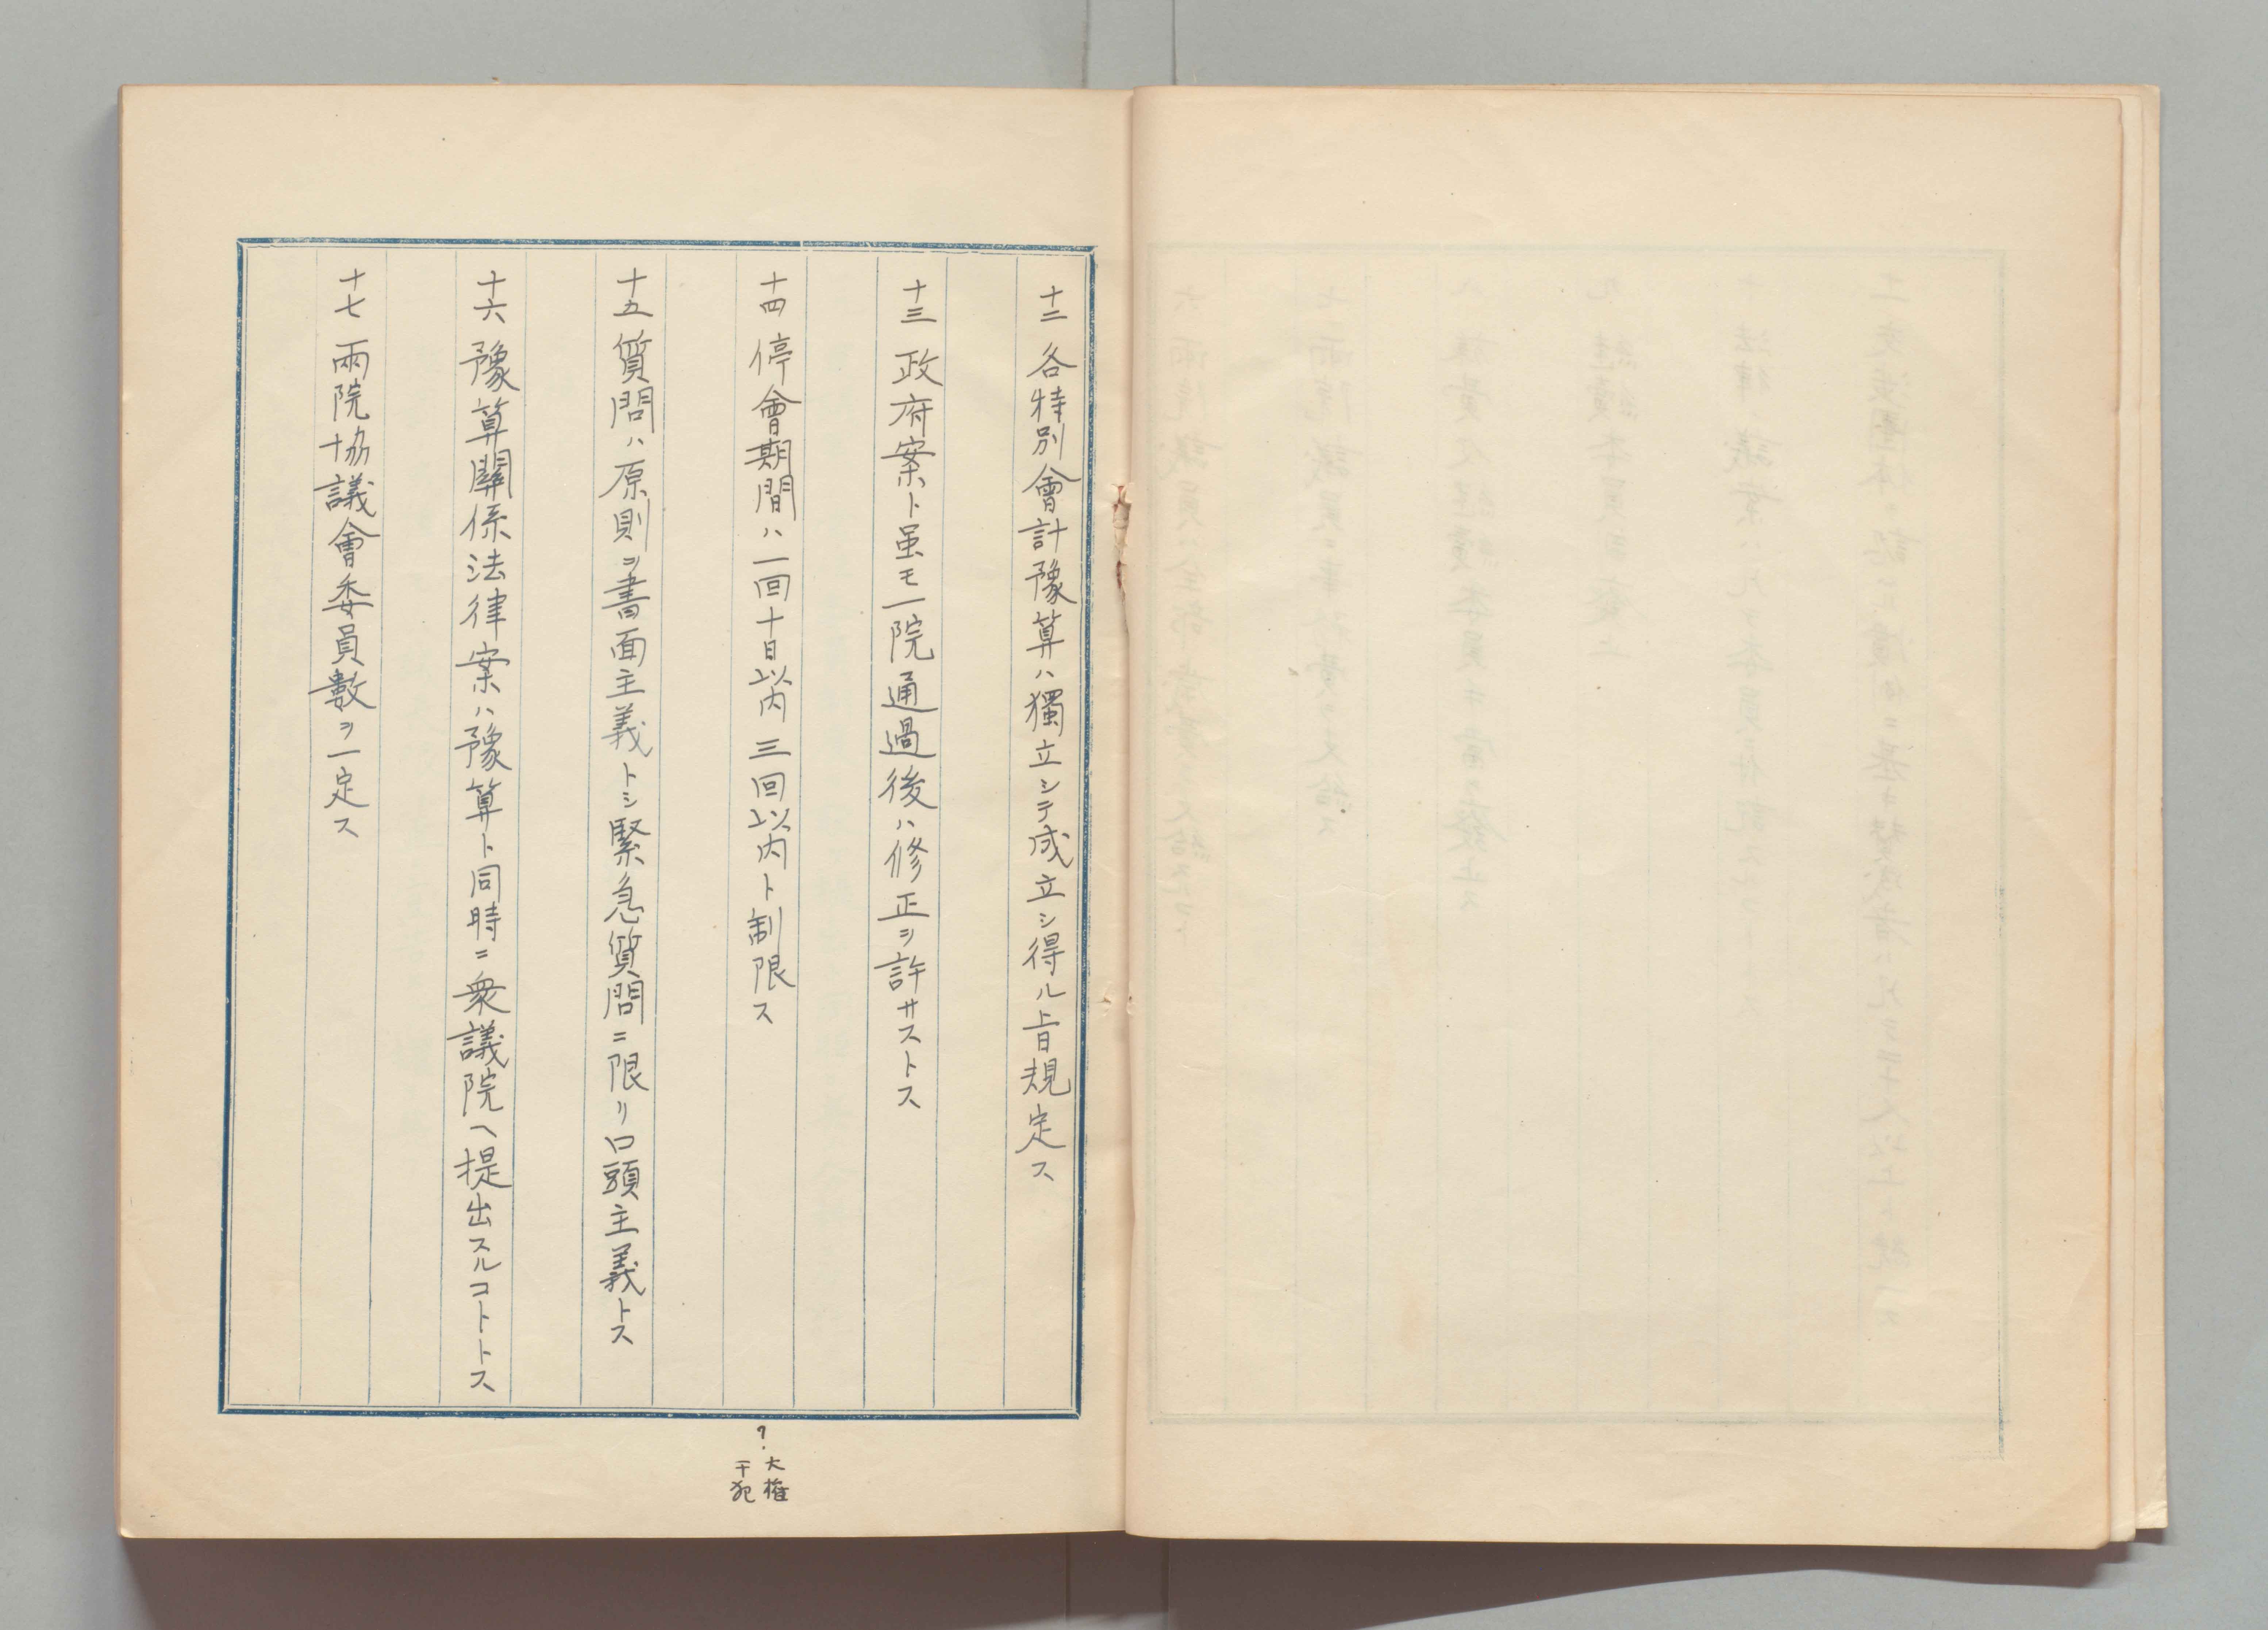 十二 各特別會計豫算ハ獨立シテ成立シ得ル旨規定ス
十三 政府案ト虽モ一院通過後ハ修正ヲ許サストス
十四 停會期間ハ一回十日以内三回以内ト制限ス
十五 質問ハ原則ヲ書面主義トシ緊急質問ニ限リ口頭主義トス
十六 豫算關係法律案ハ豫算ト同時ニ衆議院ヘ提出スルコトトス
十七 兩院協議會委員數ヲ一定ス
?大権
干犯